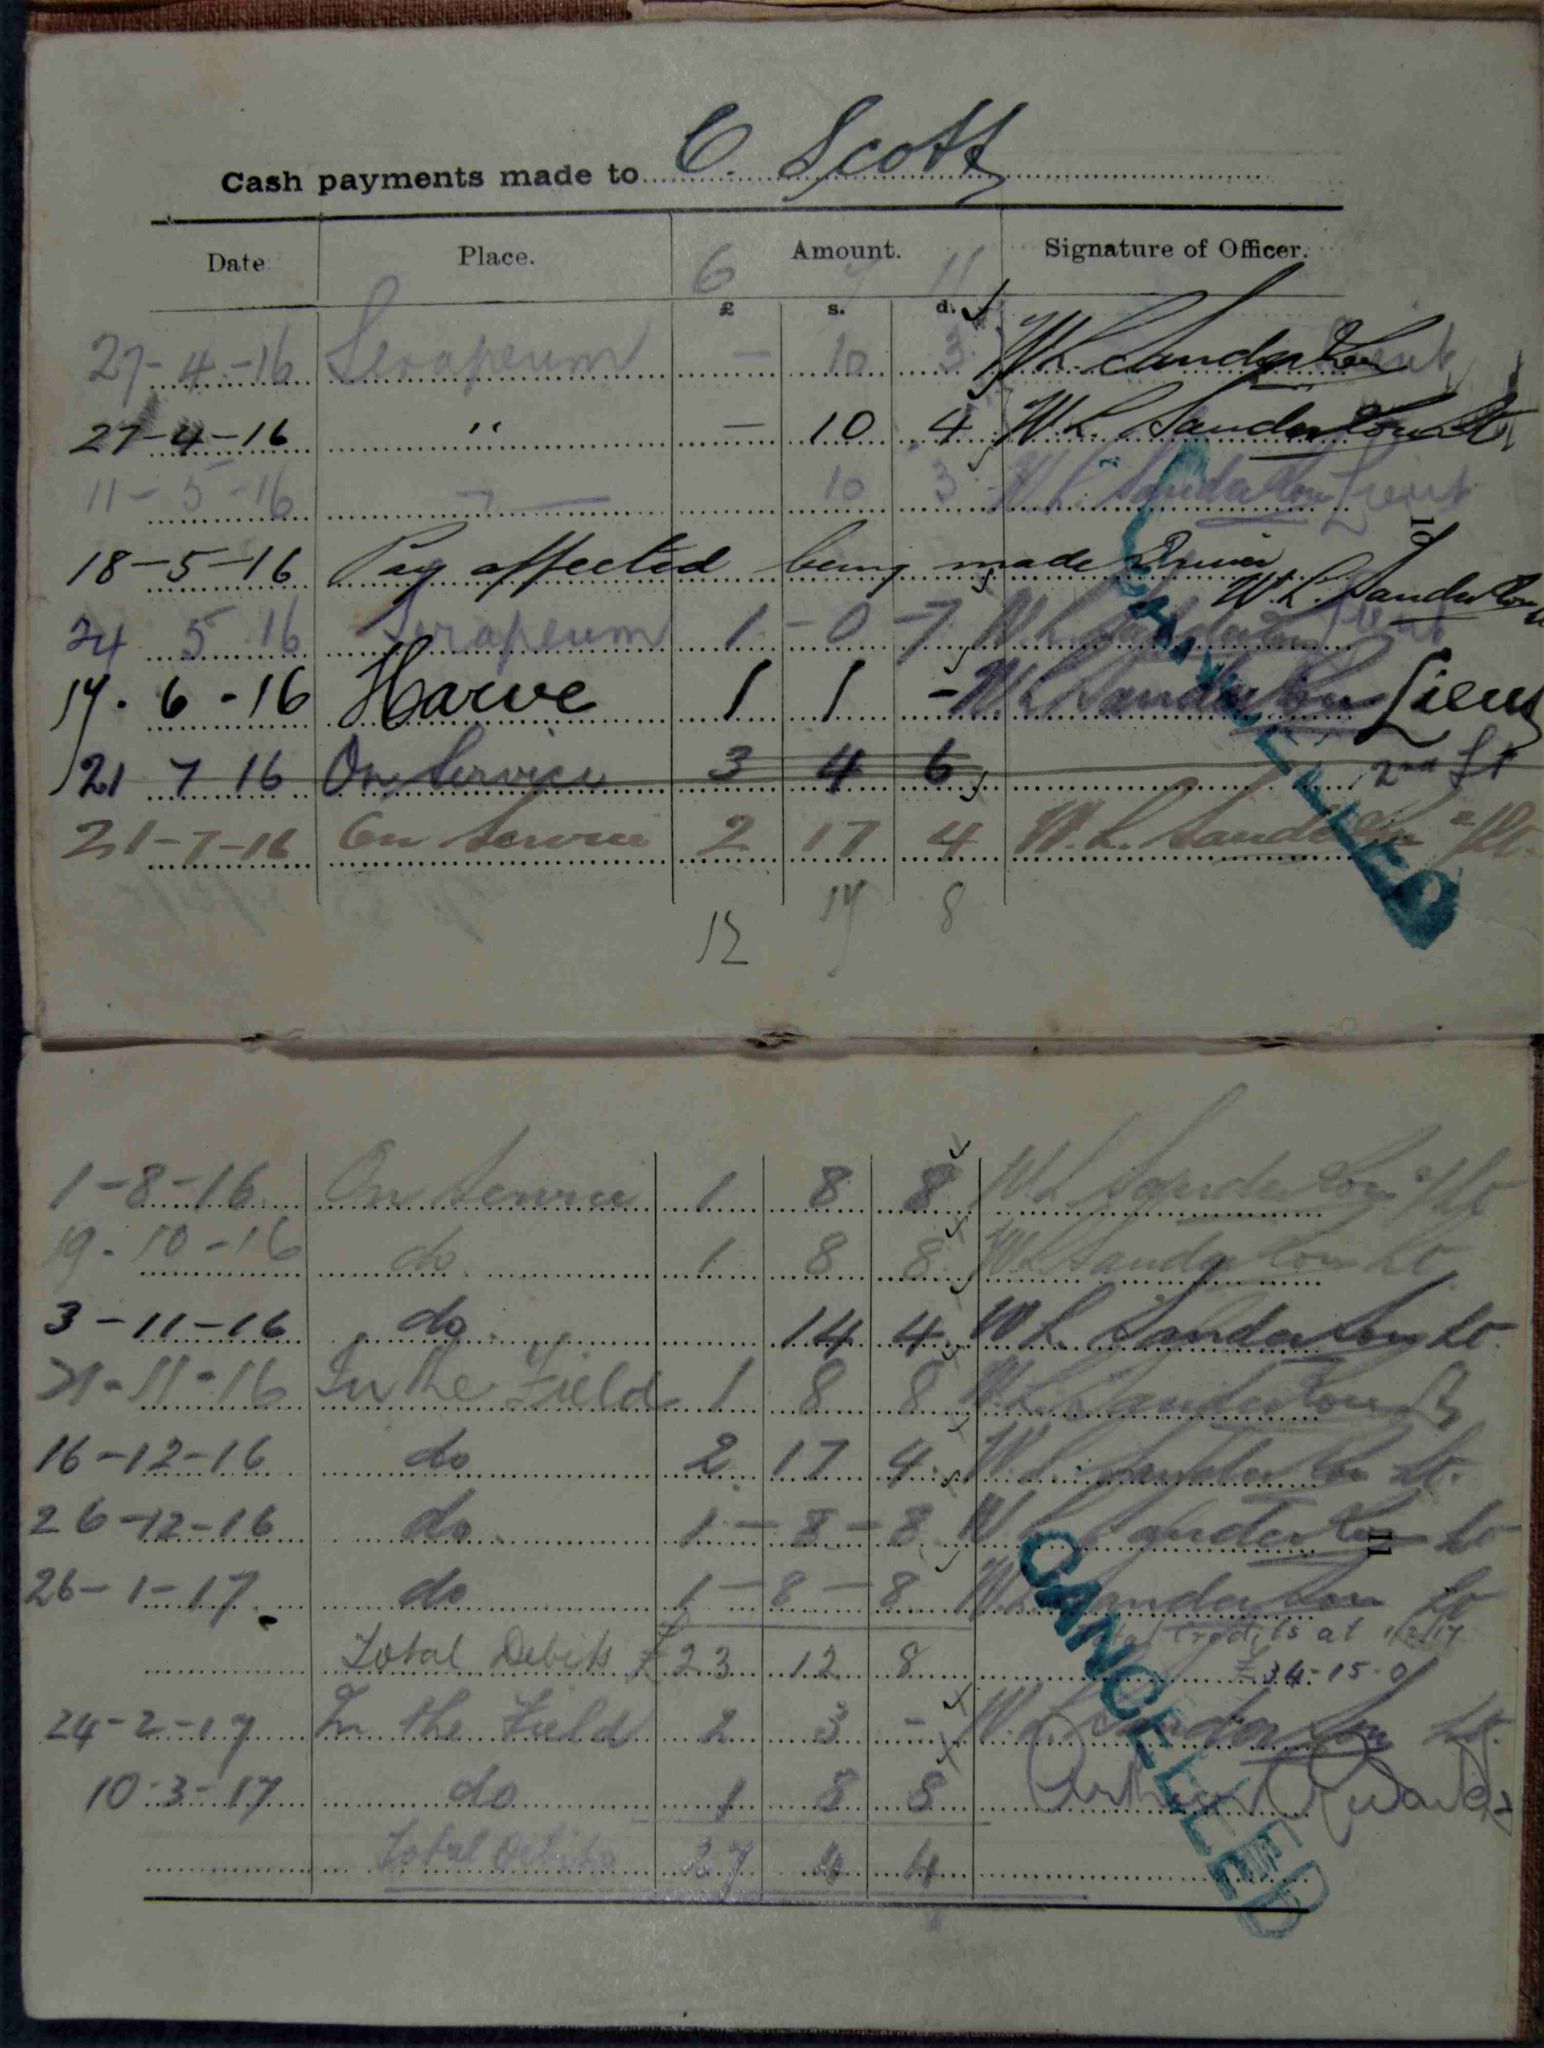 Cash payments made to C. Scott
Date Place. Amount. Signature of Officer.
6 7 11
£ s. d.
27-4-16 Serapeum — 10 3 W L Sanderson Lieut
27-4-16 " — 10 4 W L. Sanderson Lt
11-5-16 — " — 10 3 W L. Sanderson Lieut
18-5-16 Pay affected being made Driver W L. Sanderson
24 5 16 Serapeum 1-0-7 W L Sanderson Lieut
17. 6-16 Harve 1 1 - W L Sanderson Lieut
21 7 16 On Service 3 4 6 2nd Lt
21-7-16 On Service 2 17 4 W. L. Sanderson 2/Lt.
12 17 8
CANCELLED
1-8-16 On Service 1 8 8 W L Sanderson 2/Lt
19-10-16 do 1 8 8 W L Sanderson Lt
3-11-16 do. 14 4 W L Sanderson Lt.
21-11-16 In the Field 1 8 8 W L Sanderson Lt
16-12-16 do 2 17 4 W. L. Sanderson Lt.
26-12-16 do. 1-8-8 W L Sanderson Lt
26-1-17. do 1-8-8 W L Sanderson Lt
Credits at 1/2/17
Total Debits £23 12 8 £34-15-0
24-2-17 In the Field 2 3 - W. L. Sanderson Lt.
10-3-17 do 1 8 8 Arthur
Total Debits 27 4 4
CANCELLED